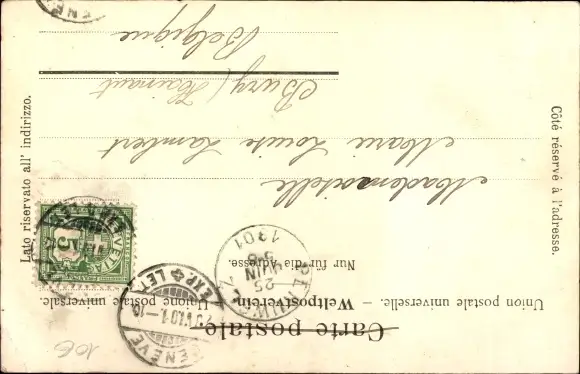 Carte postale.
Union postale universelle. – Weltpostverein. – Unione postale universale.
Nur für die Adresse.
Côté réservé à l'adresse.
Lato riservato all' indirizzo.
GENÈVE
EXP. LET.
1901
25 JUIN
5
Mademoiselle
Marie Louise Lambert
Buvry (Hainaut
Belgique
106